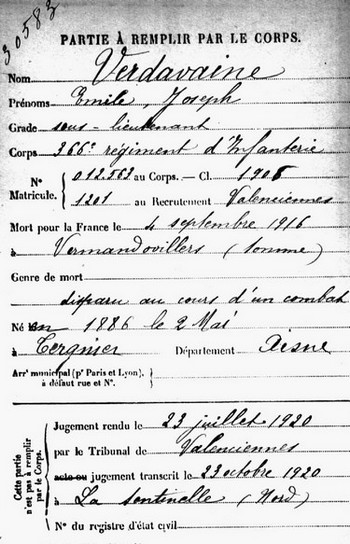 30583
PARTIE À REMPLIR PAR LE CORPS.
Nom Verdavaine
Prénoms Emile, Joseph
Grade sous-lieutenant
Corps 366e régiment d'Infanterie
N° Matricule. 012.563 au Corps. — Cl. 1906
1201 au Recrutement Valenciennes
Mort pour la France le 4 septembre 1916
à Vermandovillers (Somme)
Genre de mort
disparu au cours d'un combat
Né en 1886 le 2 Mai
à Tergnier Département Aisne
Arrt municipal (pr Paris et Lyon),
à défaut rue et N°.
Cette partie n'est pas à remplir par le Corps.
Jugement rendu le 23 juillet 1920
par le Tribunal de Valenciennes
acte ou jugement transcrit le 23 octobre 1920
à La Sentinelle (Nord)
N° du registre d'état civil